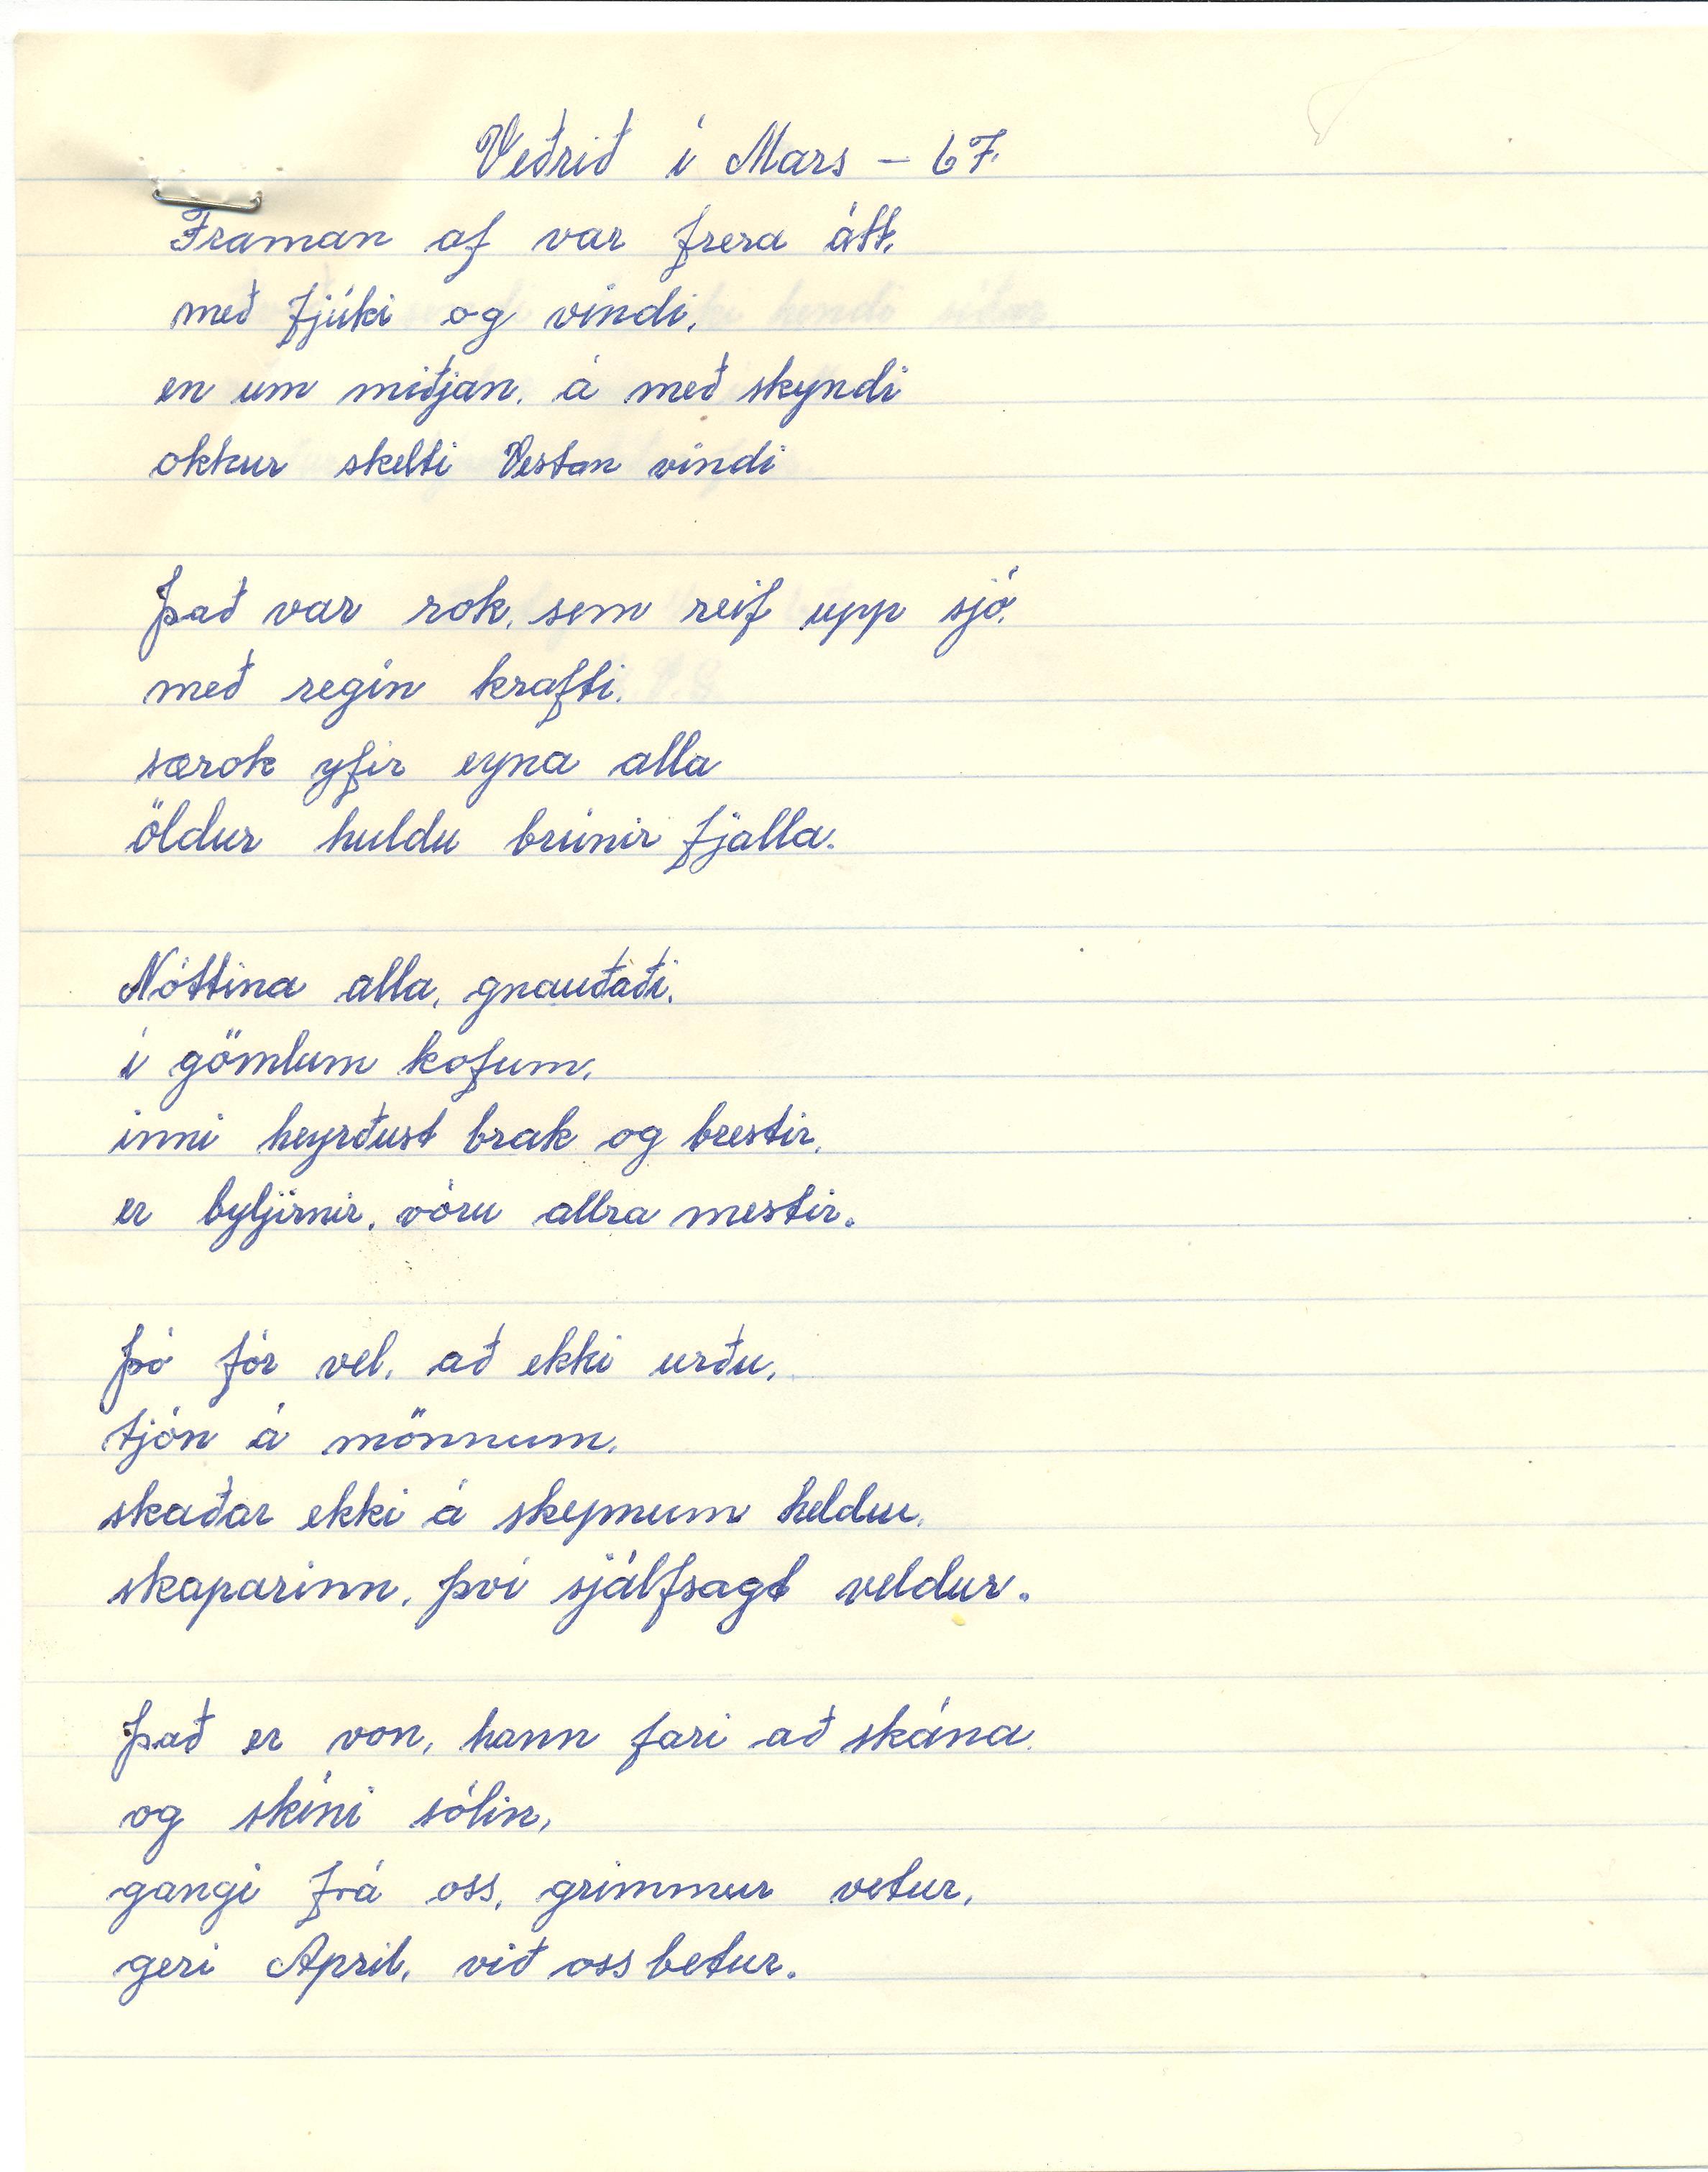 Veðrið í Mars – 67.
Framan af var frera átt,
með fjúki og vindi,
en um miðjan, á með skyndi
okkur skelti Vestan vindi
Það var rok, sem reif upp sjó,
með regin krafti,
særok yfir eyna alla
öldur huldu brúnir fjalla.
Nóttina alla, gnauðaði,
í gömlum kofum,
inni heyrðust brak og brestir,
er byljirnir, vóru allra mestir.
Þó fór vel, að ekki urðu,
tjón á mönnum,
skaðar ekki á skepnum heldur,
skaparinn, því sjálfsagt veldur.
Það er von, hann fari að skána
og skíni sólin,
gangi frá oss, grimmur vetur,
geri April, við oss betur.